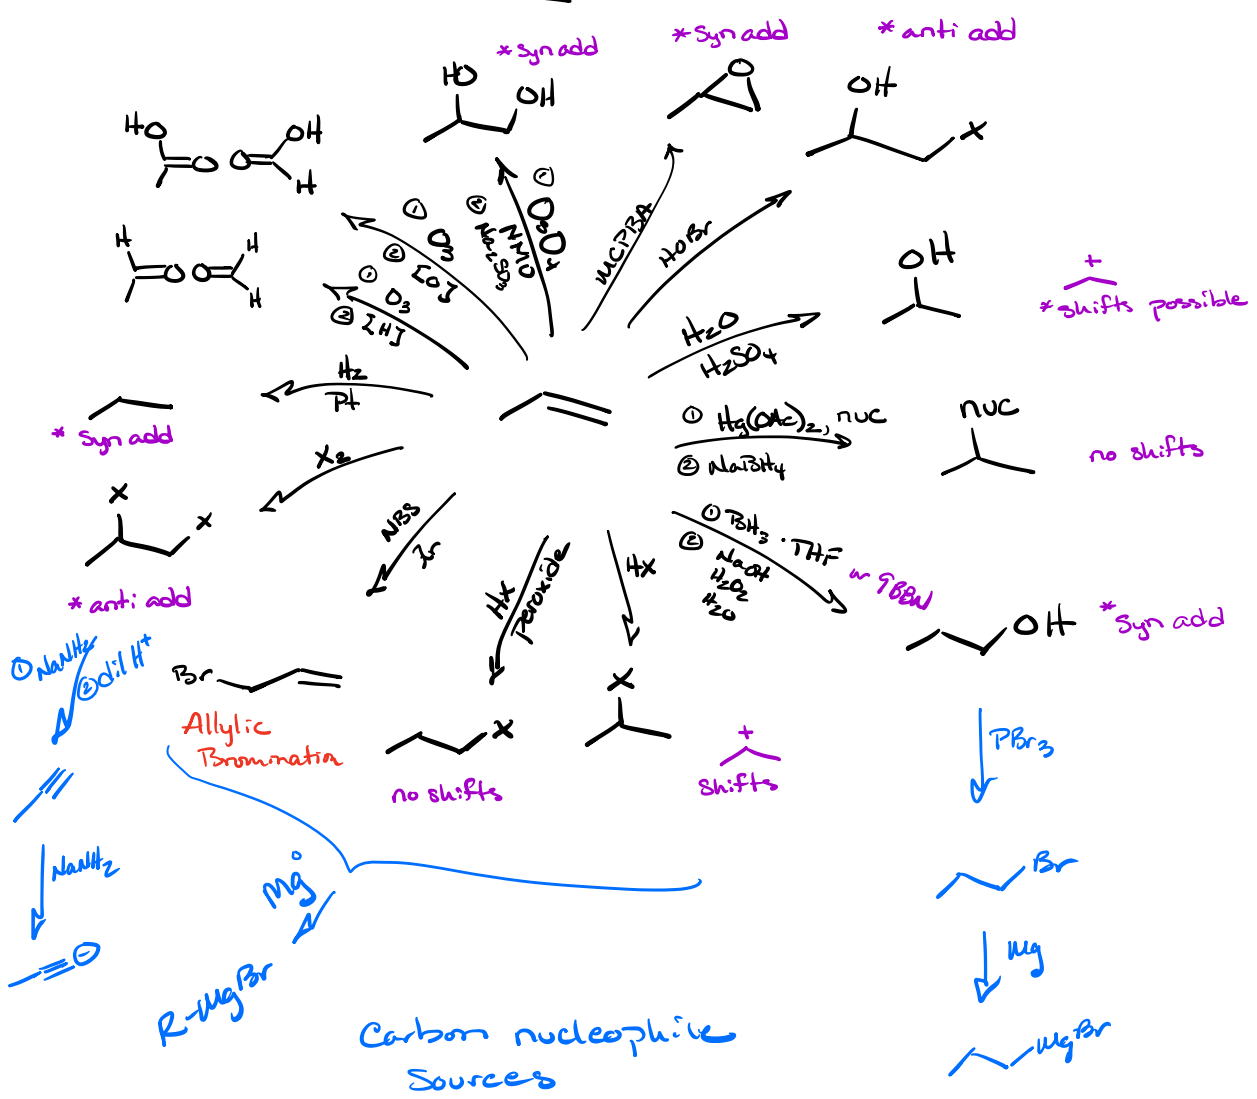 *syn add
*syn add
*anti add
HO
OH
O
OH
X
HO
O
O
OH
H
① O3
② [O]
① OsO4
② NMO
Na2SO3
MCPBA
HOBr
H
O
O
H
H
① O3
② [H]
OH
+
*shifts possible
H2O
H2SO4
H2
Pt
* syn add
① Hg(OAc)2, nuc
② NaBH4
nuc
no shifts
X2
X
X
*anti add
NBS
hr
HX
peroxide
HX
① BH3 · THF
② NaOH
H2O2
H2O
or 9BBN
OH
*syn add
① NaNH2
② dil H+
Br
Allylic
Bromination
X
no shifts
X
+
shifts
PBr3
NaNH2
−
Mg°
R-MgBr
Br
Mg
MgBr
Carbon nucleophile
Sources